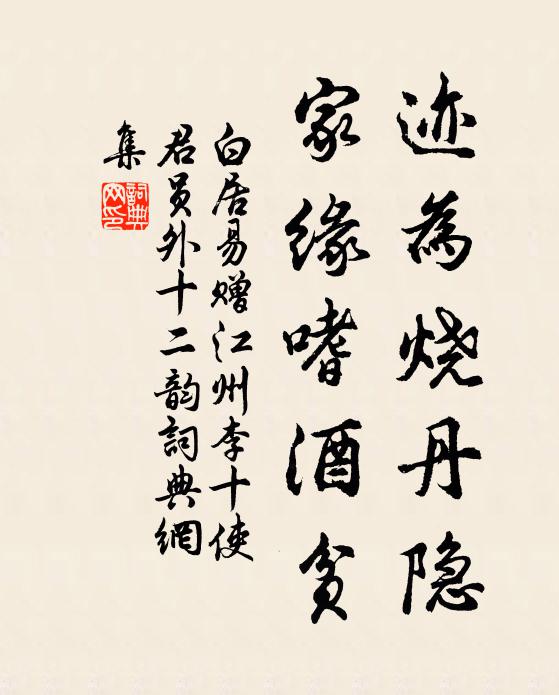 迹為烧丹隐
家缘嗜酒贫
白居易赠江州李十使
君员外十二韵詞典網
集
詞典
网印